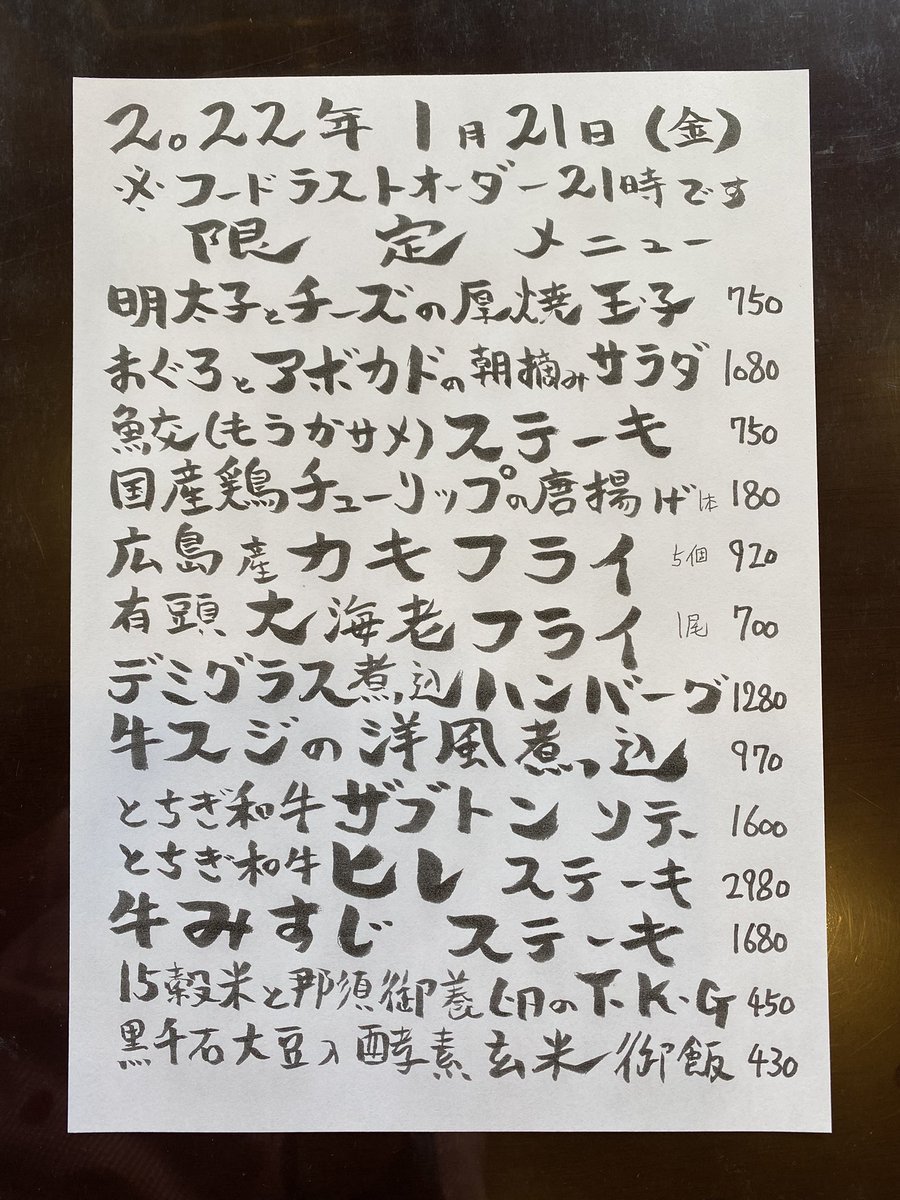 2022年 1月21日(金)
※フードラストオーダー21時です
限定メニュー
明太子とチーズの厚焼玉子 750
まぐろとアボカドの朝摘みサラダ 1080
鮫(もうかサメ)ステーキ 750
国産鶏チューリップの唐揚げ 1本 180
広島産カキフライ 5個 920
有頭大海老フライ 1尾 700
デミグラス煮込ハンバーグ 1280
牛スジの洋風煮込 970
とちぎ和牛ザブトンソテー 1600
とちぎ和牛ヒレステーキ 2980
牛みすじステーキ 1680
15穀米と那須御養卵のT.K.G 450
黒千石大豆入酵素玄米御飯 430